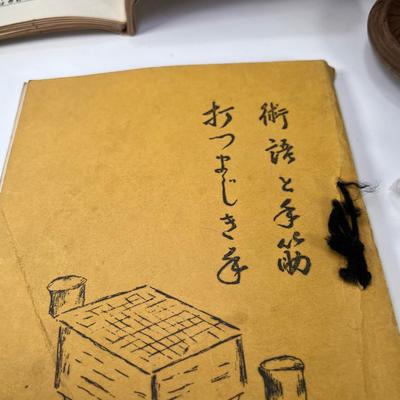 術語と手筋
打つまじき手